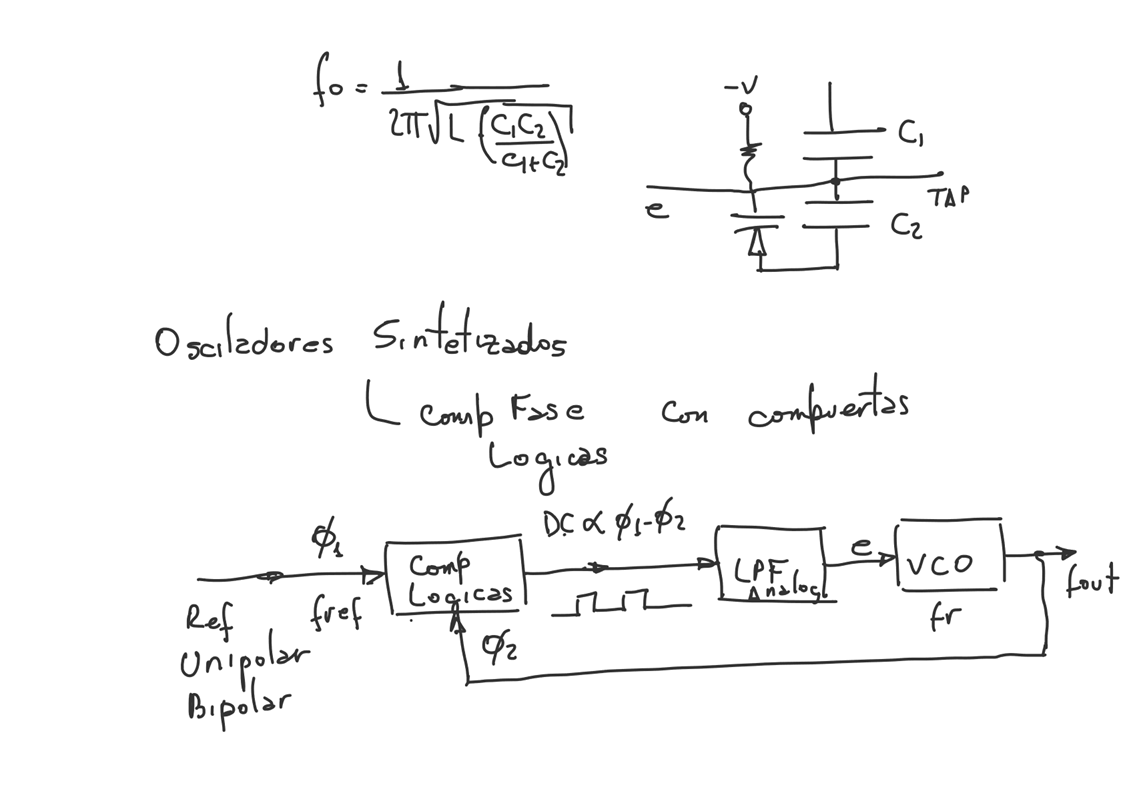 fo = 1 / 2π√L (C1C2 / C1+C2)
-V
C1
e
TAP
C2
Osciladores Sintetizados
Comp Fase con compuertas
Logicas
DC ∝ ϕ1-ϕ2
ϕ1
Comp
Logicas
LPF
Analog
e
VCO
fout
Ref
fref
fr
ϕ2
Unipolar
Bipolar